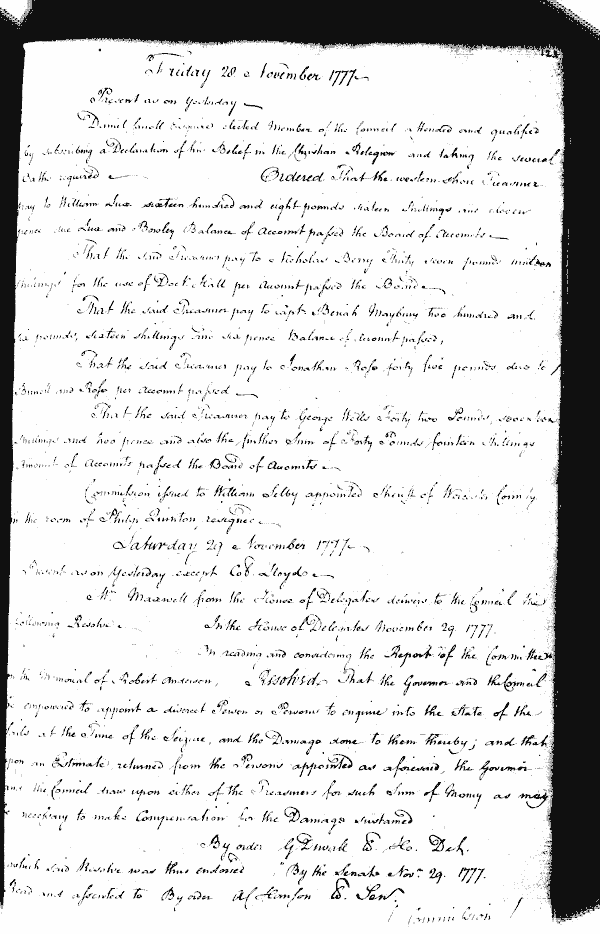 Friday 28 November 1777
Present as on Yesterday
Daniel Carroll Esquire elected Member of the Council attended and qualified
by subscribing a Declaration of his Belief in the Christian Religion and taking the several
Oaths required Ordered That the western Shore Treasurer
pay to William Lux sixteen hundred and eight pounds sixteen Shillings and eleven
pence due Lux and Bowley Balance of Account passed the Board of Accounts
That the said Treasurer pay to Nicholas Berry Thirty seven pounds
shillings for the use of Doctr Hall per Account passed the Board
That the said Treasurer pay to Capt. Beriah Maybury two hundred and
six pounds, sixteen shillings and six pence Balance of Account passed,
That the said Treasurer pay to Jonathan Ross forty five pounds due to
and Ross per Account passed
That the said Treasurer pay to George Wells Forty two Pounds, seventeen
Shillings and two pence and also the further Sum of Forty Pounds fourteen Shillings
Amount of Accounts passed the Board of Accounts
Commission issued to William Selby appointed Sheriff of Worcester County
in the room of Philip Quinton, resigned
Saturday 29 November 1777
Present as on Yesterday except Col. Lloyd
Mr. Maxwell from the House of Delegates delivers to the Council the
following Resolve In the House of Delegates November 29. 1777.
On reading and considering the Report of the Committee
on the Memorial of Robert Anderson, Resolved That the Governor and the Council
be empowered to appoint a discreet Person or Persons to enquire into the State of the
at the Time of the Seizure, and the Damage done to them thereby; and that
upon an Estimate returned from the Persons appointed as aforesaid, the Governor
and the Council draw upon either of the Treasurers for such Sum of Money as may
be necessary to make Compensation for the Damage sustained
By order G Duvall Cl. Ho. Del.
which said Resolve was thus endorsed "By the Senate Novr. 29. 1777.
Read and assented to By order Al Hanson Cl. Sen.
Commission